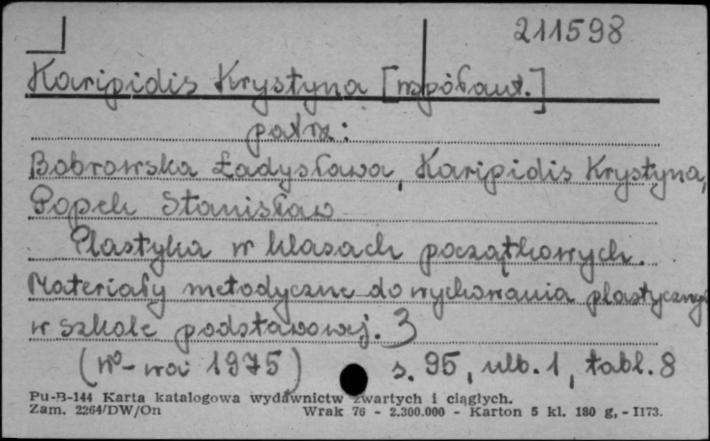 211598
Karipidis Krystyna [współaut.]
patrz:
Bobrowska Ładysława, Karipidis Krystyna,
Popek Stanisław
Plastyka w klasach początkowych.
Materiały metodyczne do wychowania plastycznego
w szkole podstawowej. 3
(W-wa 1975) s. 95, ulb. 1, tabl. 8
Pu-B-144 Karta katalogowa wydawnictw zwartych i ciągłych.
Zam. 2264/DW/On Wrak 76 - 2.300.000 - Karton 5 kl. 180 g. - II73.